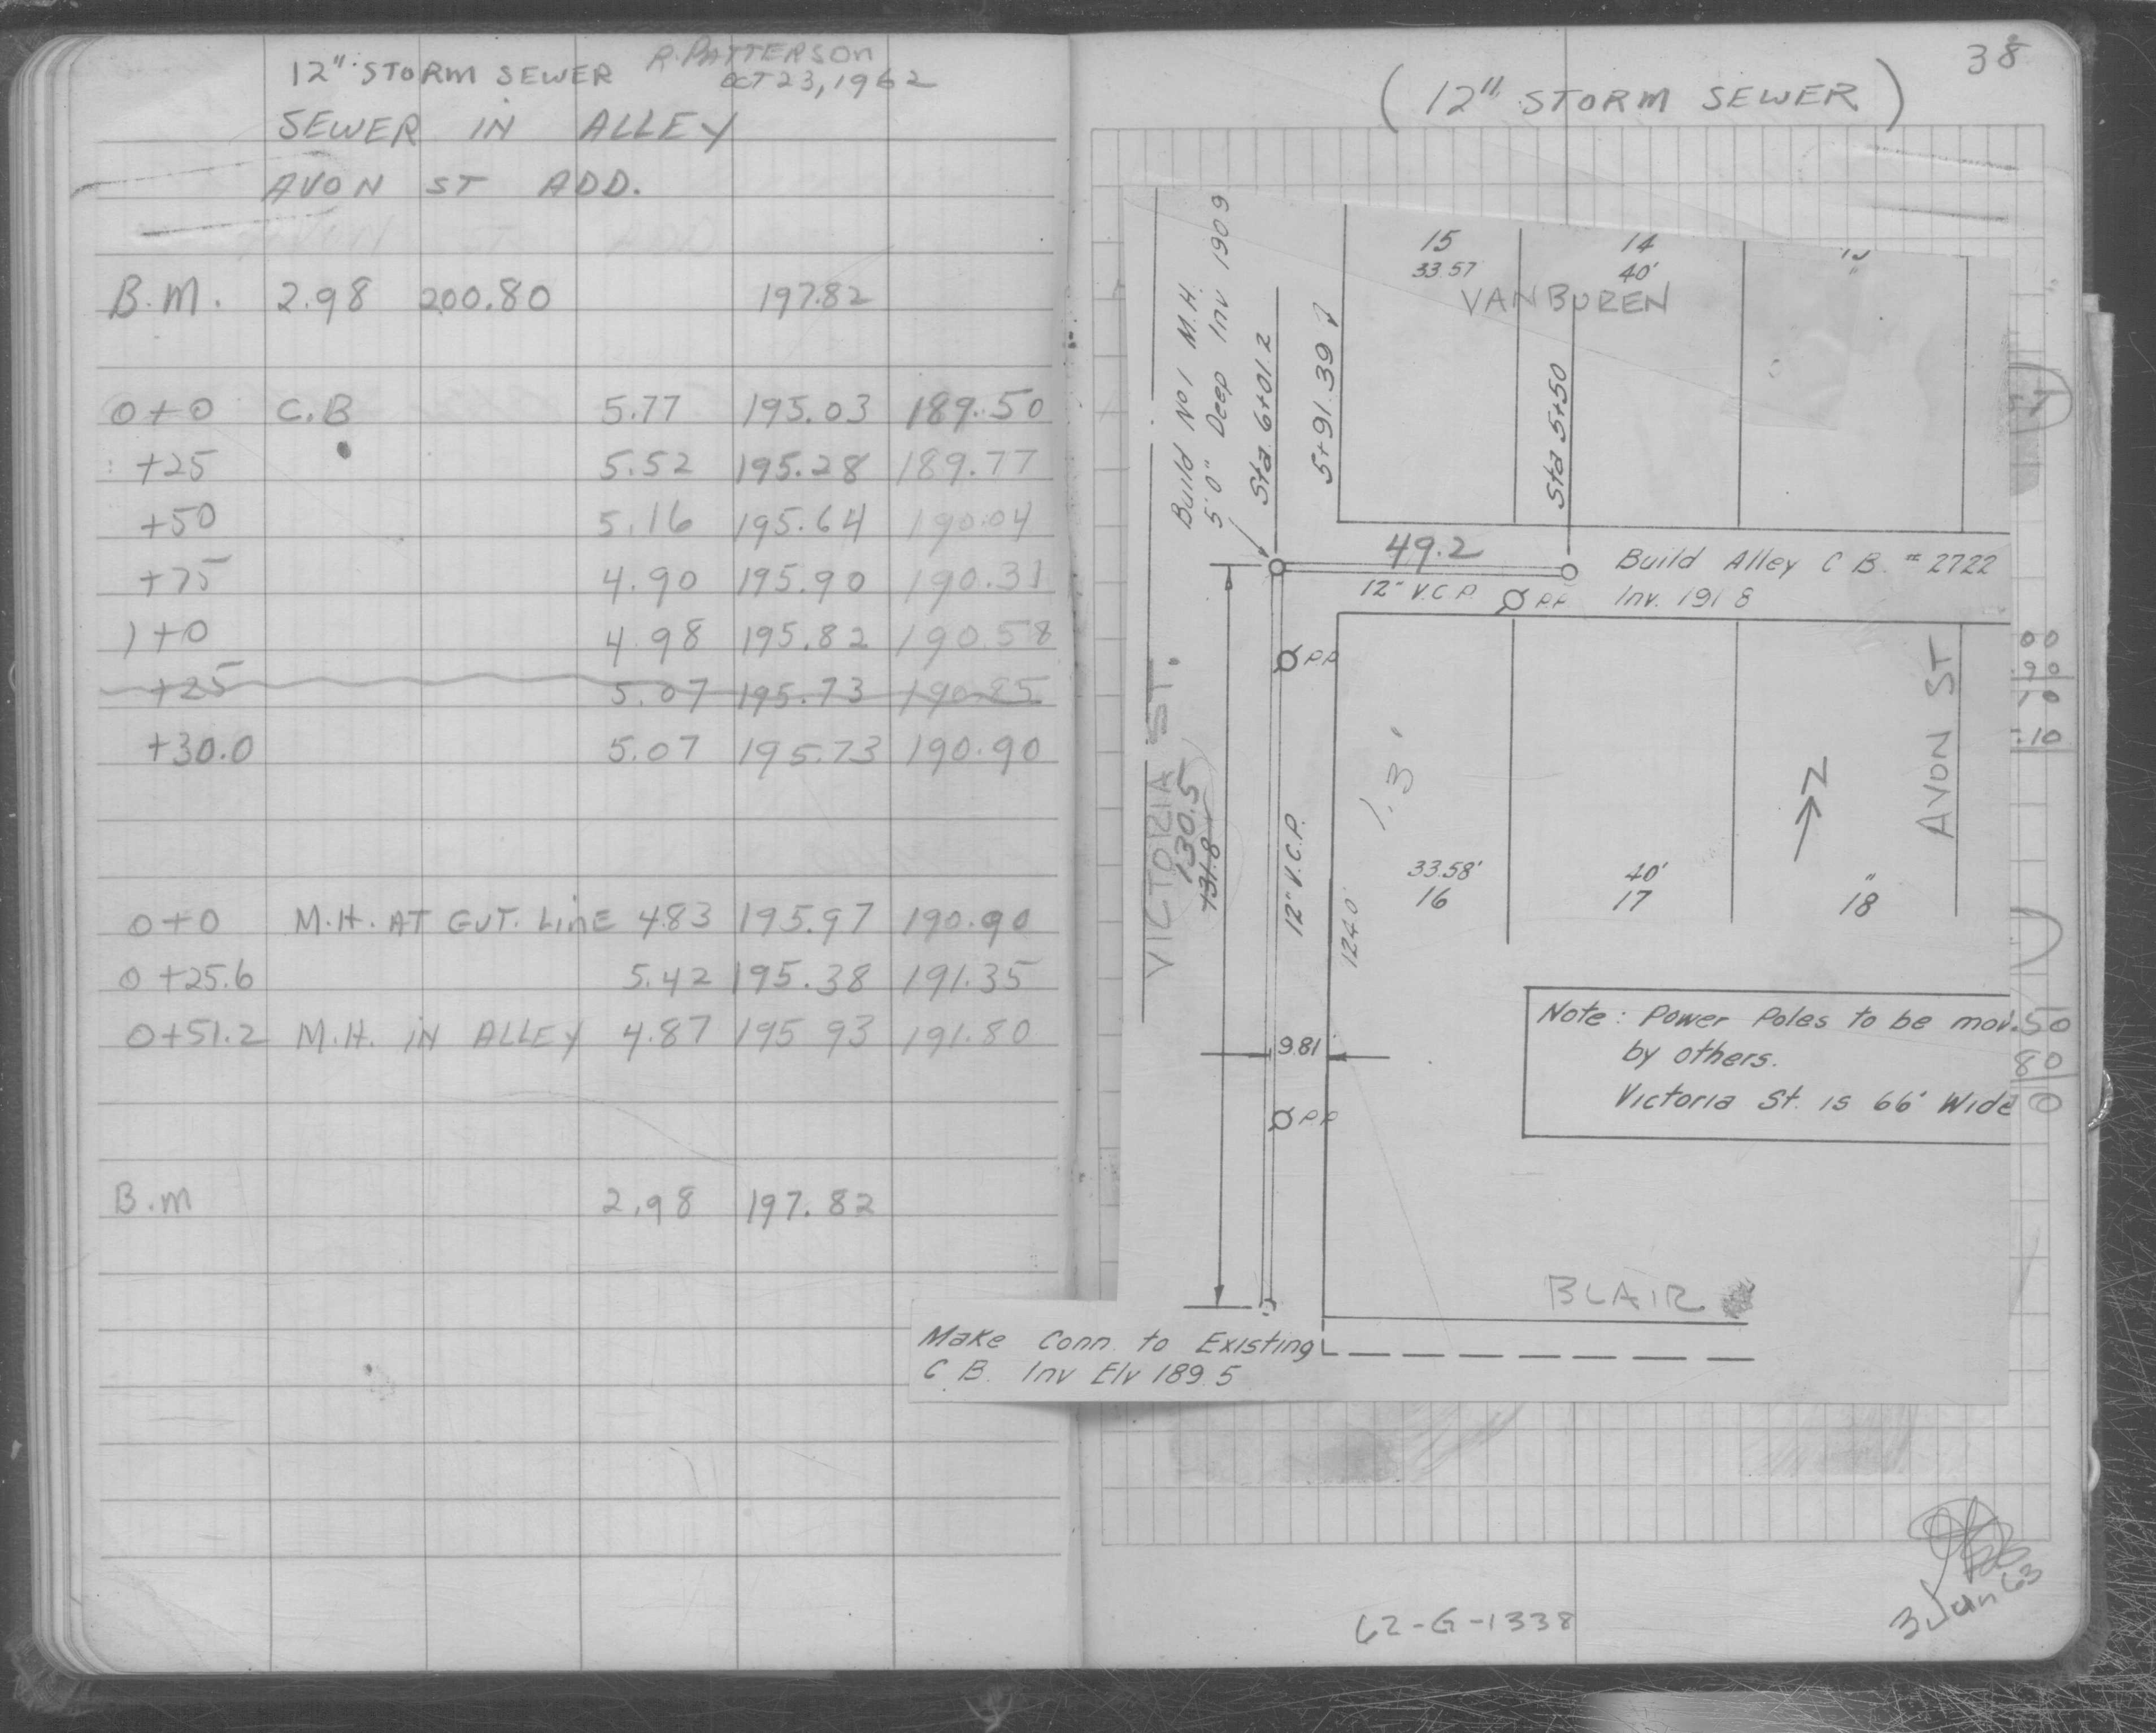 12" STORM SEWER R. PATTERSON
OCT 23, 1962
SEWER IN ALLEY
AVON ST ADD.
B.M. 2.98 200.80 197.82
0+0 C.B 5.77 195.03 189.50
+25 5.52 195.28 189.77
+50 5.16 195.64 190.04
+75 4.90 195.90 190.31
1+0 4.98 195.82 190.58
+25 5.07 195.73 190.85
+30.0 5.07 195.73 190.90
0+0 M.H. AT GUT. LINE 4.83 195.97 190.90
0+25.6 5.42 195.38 191.35
0+51.2 M.H. IN ALLEY 4.87 195.93 191.80
B.M 2.98 197.82
38
(12" STORM SEWER)
Build No 1 M.H.
5'0" Deep Inv 190 9
Sta. 6+01.2
5+91.39
15
33.57
14
40'
VAN BUREN
Sta 5+50
49.2
12" V.C.P.
P.P.
Build Alley C B. # 2722
Inv. 191 8
P.P.
VICTORIA ST.
130.5
131.8
12" V.C.P.
124.0'
1.3'
33.58'
16
40'
17
"
18
N
AVON ST
9.81
P.P.
Note: Power Poles to be mov
by others.
Victoria St. is 66' Wide
BLAIR
Make Conn. to Existing
C B. Inv Elv 189.5
00
.90
10
.10
.50
80
0
62-G-1338
3 Jan 63